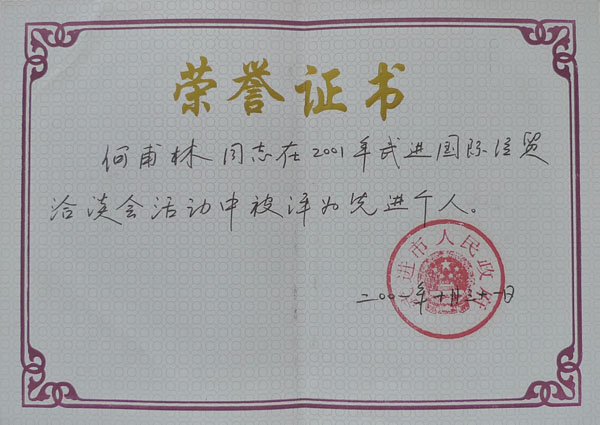 荣誉证书
何甫林同志在2001年武进国际经贸
洽谈会活动中被评为先进个人。
武进市人民政府
二〇〇一年十月三十一日